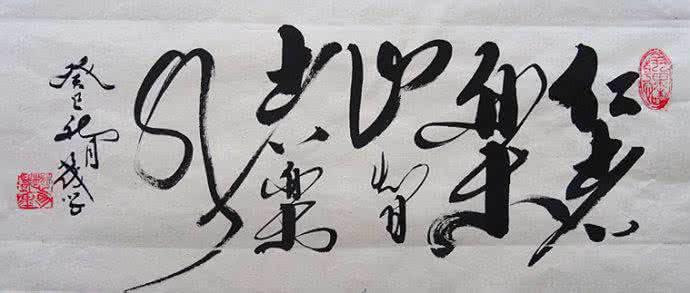 仁者
樂
山智
者樂
水
癸巳秋月